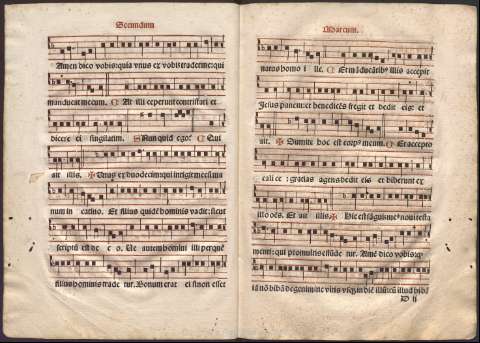 Secundum
Amen dico vobis: quia vnus ex vobis tradet me: qui
manducat mecum. C At illi ceperunt contristari et
dicere ei singulatim. Nunquid ego? C Qui
ait illis. ✠ Vnus ex duodecim: qui intigit mecū manum
num in catino. Et filius quidē hominis vadit: sicut
scriptū est de eo. Ve autem homini illi per quē
filius hominis tradetur. Bonum erat ei si non esset
Marcum.
natus homo ille. C Et māducātibꝰ illis accepit
Jesus panem: et benedicēs fregit et dedit eis: et
ait. ✠ Sumite hoc est corpꝰ meum. C Et accepto
calice: gratias agens dedit eis et biberunt ex
illo oēs. Et ait illis. ✠ Hic est sāguis meꝰ noui testa
menti: qui pro multis effūdetur. Amē dico vobis: qꝛ
iā nō bibā de genimine vitis vsqꝫ in diē illū: cū illud bibā
D ii